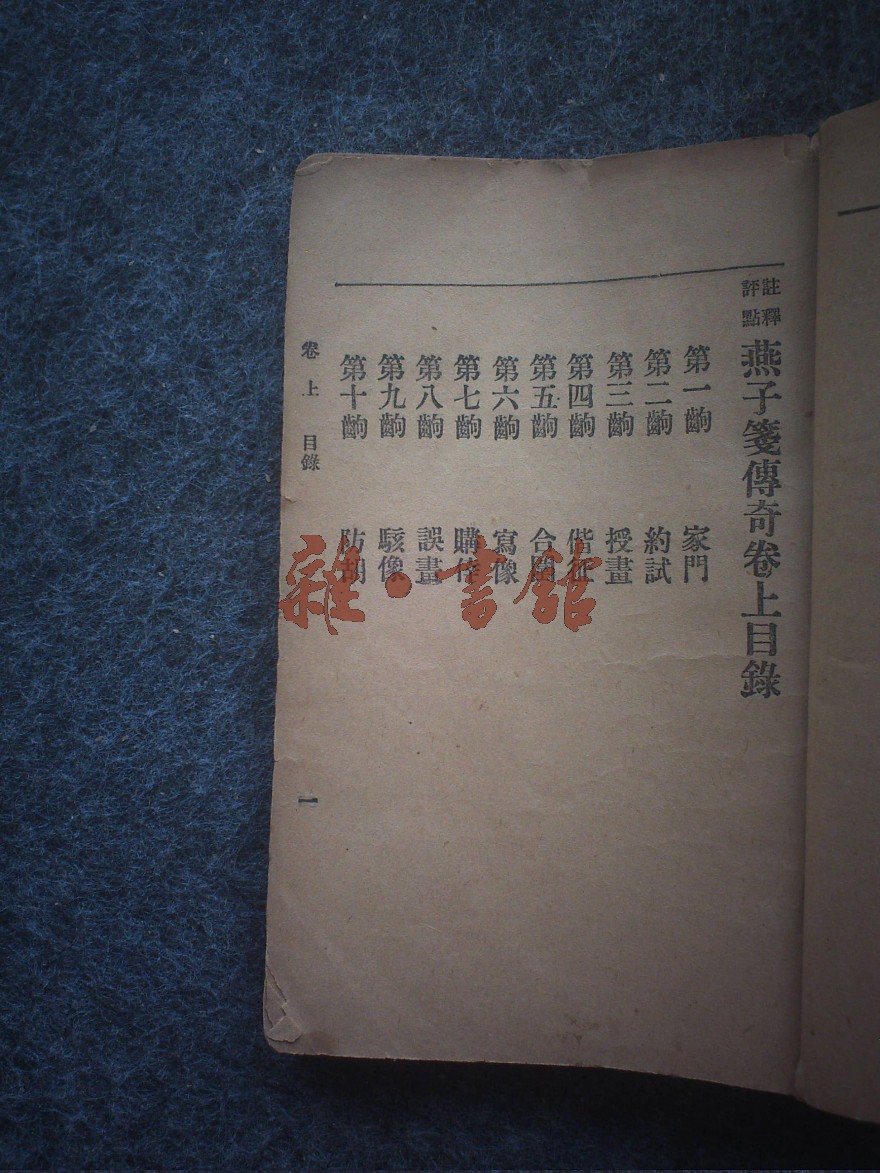 註釋
評點
燕子箋傳奇卷上目錄
第一齣 家門
第二齣 約試
第三齣 授畫
第四齣 偕征
第五齣 合圍
第六齣 寫像
第七齣 購倖
第八齣 誤畫
第九齣 駭像
第十齣 防胡
卷上 目錄 一
雜·書館